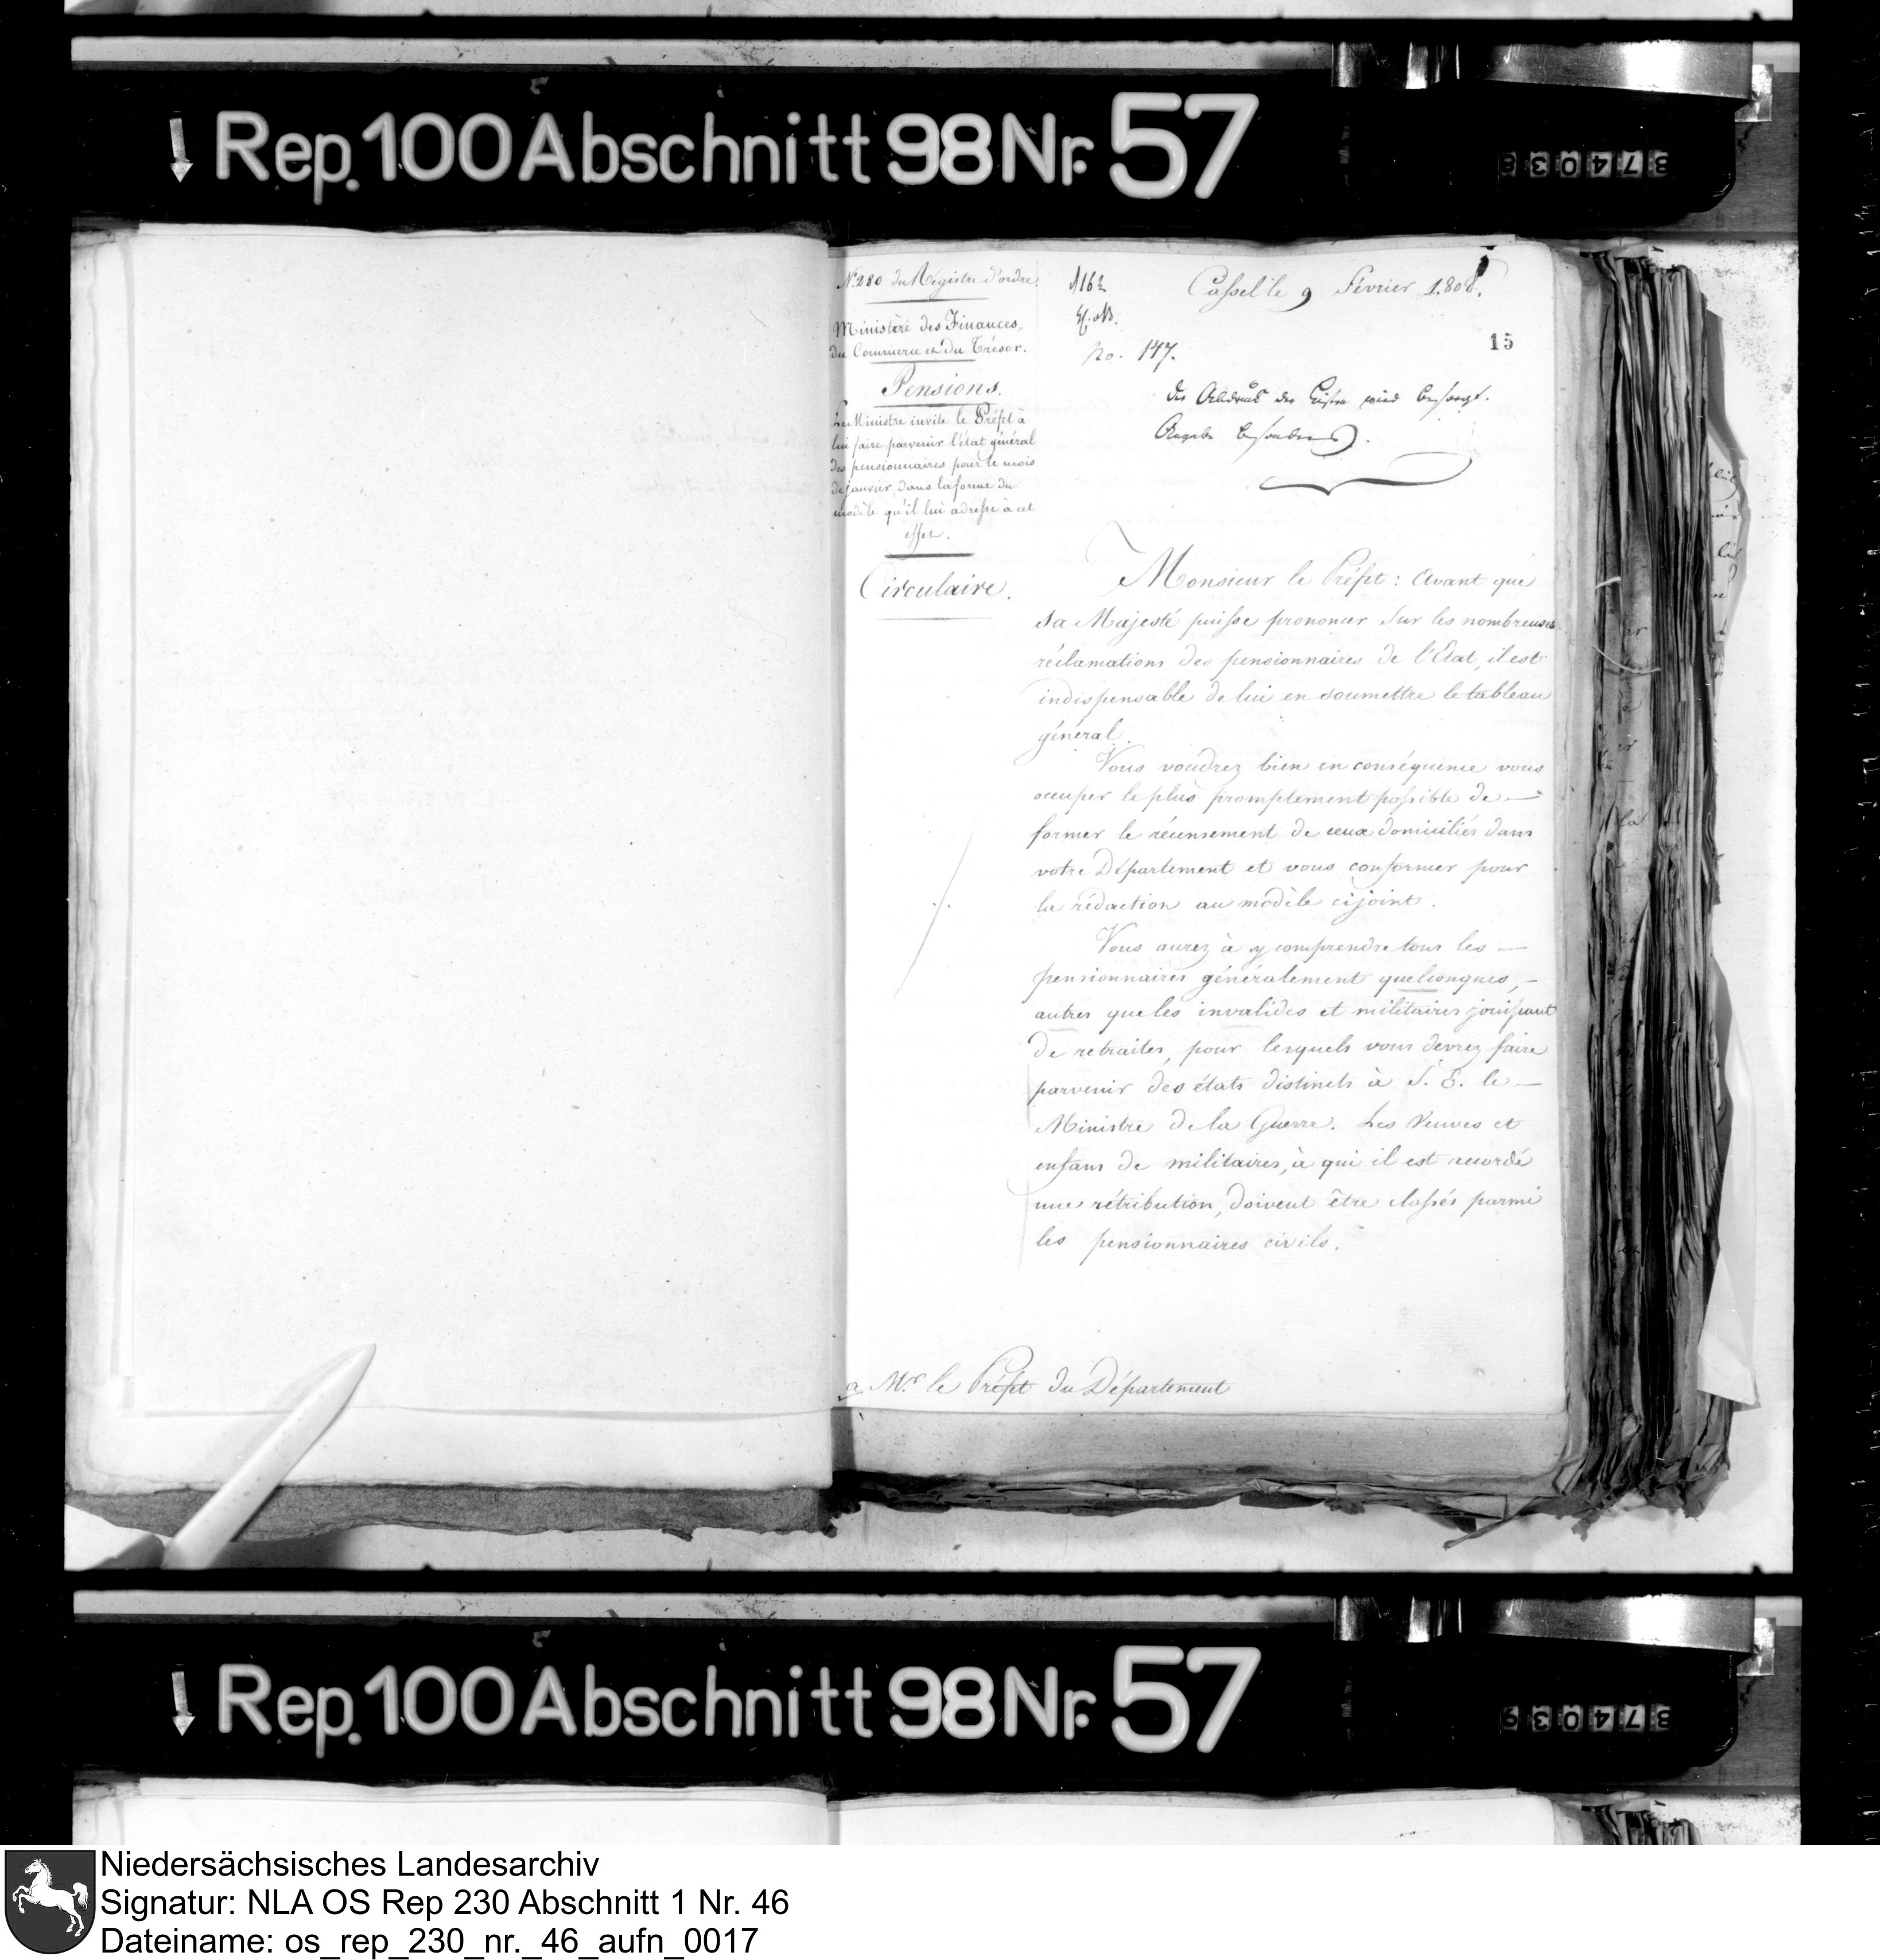 Rep. 100 Abschnitt 98 Nr. 57
874038
N.° 280 du Registre d'ordre.
Ministère des Finances,
du Commerce et du Trésor.
Pensions.
Le Ministre invite le Préfet à
lui faire parvenir l'état général
des pensionnaires pour le mois
de janvier, dans la forme du
modèle qu'il lui adresse à cet
effet.
Circulaire.
1162
No. 147.
Cassel le 9 Février 1808.
15
der der Listen wird besorgt.
Monsieur le Préfet : Avant que
sa Majesté puisse prononcer sur les nombreuses
réclamations des pensionnaires de l'Etat, il est
indispensable de lui en soumettre le tableau
général.
Vous voudrez bien en conséquence vous
occuper le plus promptement possible de —
former le récensement de ceux domiciliés dans
votre Département et vous conformer pour
la rédaction au modèle cijoint.
Vous aurez à y comprendre tous les —
pensionnaires généralement quelconques, —
autres que les invalides et militaires jouissant
de retraites, pour lesquels vous devrez faire
parvenir des états distincts à S. E. le —
Ministre de la Guerre. Les Veuves et
enfans de militaires, à qui il est accordé
une rétribution, doivent être classés parmi
les pensionnaires civils.
a M.r le Préfet du Département
Rep. 100 Abschnitt 98 Nr. 57
874039
Niedersächsisches Landesarchiv
Signatur: NLA OS Rep 230 Abschnitt 1 Nr. 46
Dateiname: os_rep_230_nr._46_aufn_0017